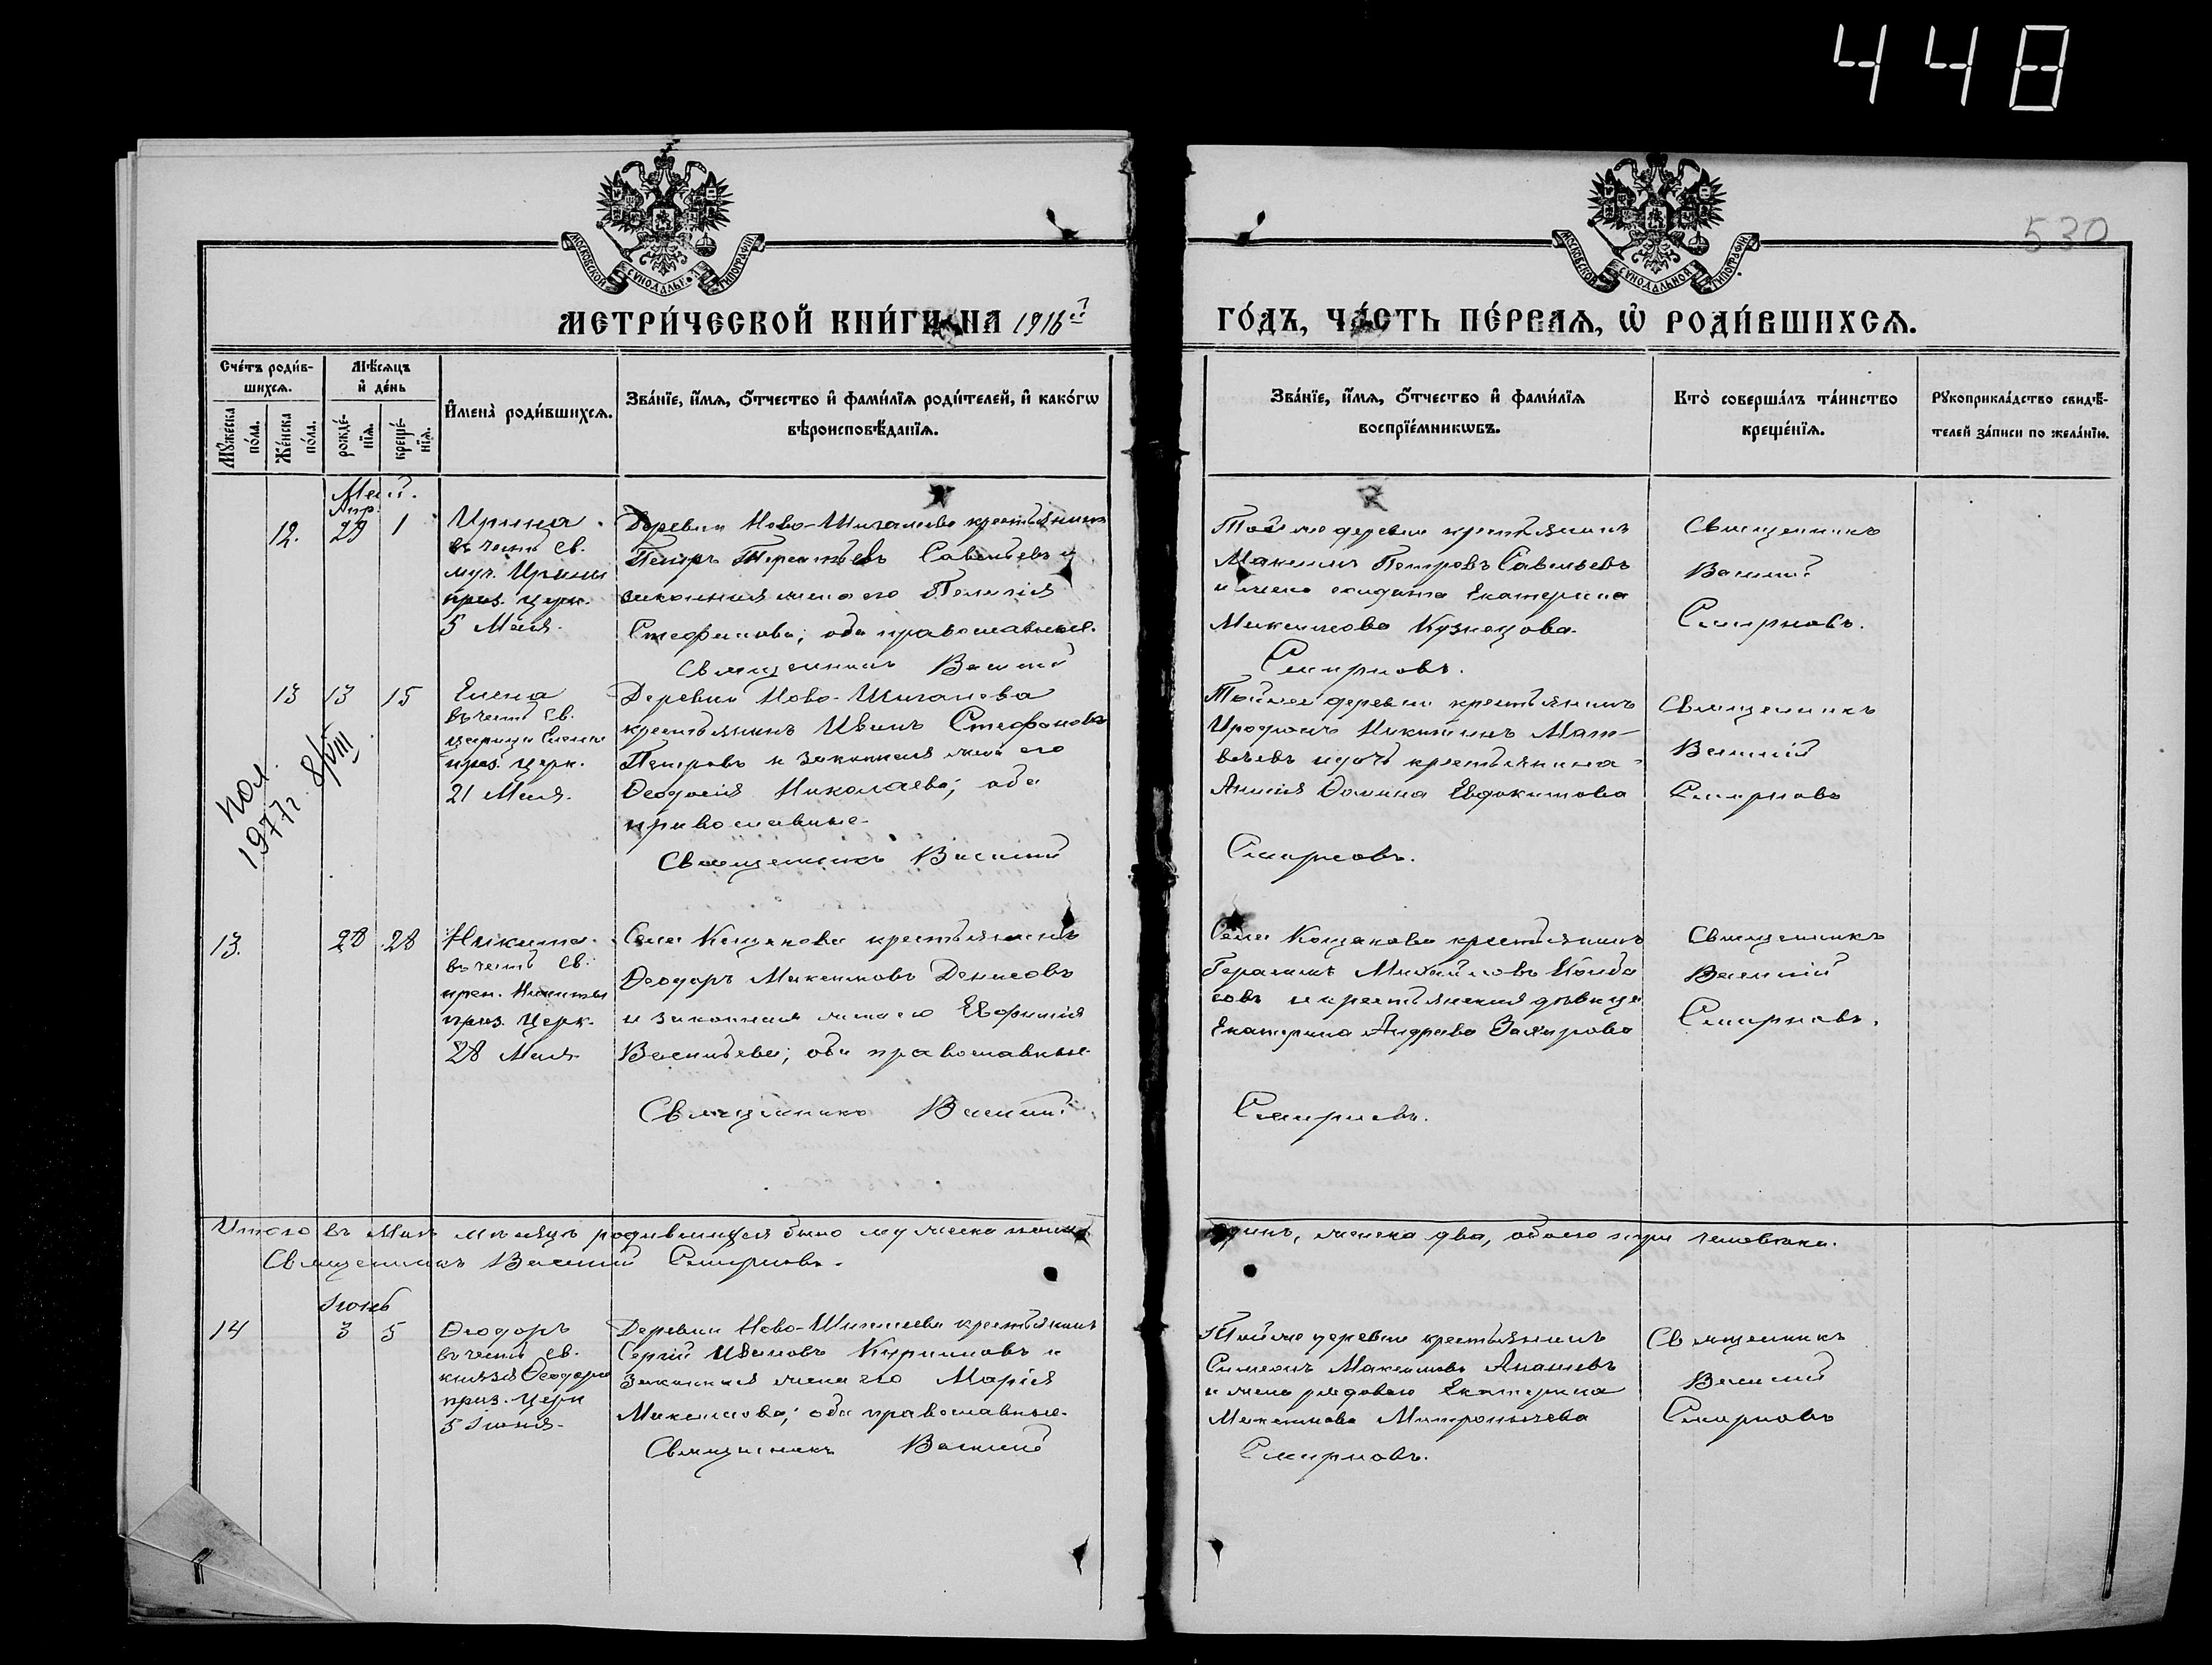 448
530
МОСКОВСКОЙ СѴНОДАЛЬНОЙ ТИПОГРАФІИ
МОСКОВСКОЙ СѴНОДАЛЬНОЙ ТИПОГРАФІИ
МЕТРИ́ЧЕСКОЙ КНИ́ГИ НА 1916й
ГО́ДЪ, ЧА́СТЬ ПЕ́РВАѦ, Ѡ҆ РОДИ́ВШИХСѦ.
Сче́тъ роди́в-
шихсѧ.
Мꙋ́жеска
по́ла.
Же́нска
по́ла.
Мѣ́сѧцъ
и҆ де́нь
рожде́-
нїѧ.
креще́-
нїѧ.
И҆мена̀ роди́вшихсѧ.
Зва́нїе, и҆́мѧ, ѻ҆́тчество и҆ фами́лїѧ роди́телей, и҆ како́гѡ
вѣроисповѣ́данїѧ.
Зва́нїе, и҆́мѧ, ѻ҆́тчество и҆ фами́лїѧ
воспрїе́мникѡвъ.
Кто̀ соверша́лъ та́инство
креще́нїѧ.
Рꙋкоприкла́дство свидѣ́-
телей за́писи по жела́нїю.
Май.
Апр.
12. 29 1
Ирина
въ честь св.
муч. Ирины
праз. церк.
5 Мая.
Деревни Ново-Шигалеева крестьянинъ
Петръ Терентьевъ Савельевъ и
законная жена его Пелагія
Стефанова; оба православные.
Священникъ Василій
Той же деревни крестьянинъ
Максимъ Петровъ Савельевъ
и жена солдата Екатерина
Максимова Кузнецова.
Смирновъ.
Священникъ
Василій
Смирновъ.
13 13 15
Елена
въ честь св.
царицы Елены
праз. церк.
21 Мая.
Деревни Ново-Шигалеева
крестьянинъ Иванъ Стефановъ
Петровъ и законная жена его
Ѳеодосія Николаева; оба
православные
Священникъ Василій
Той же деревни крестьянинъ
Иродіонъ Никитинъ Мат-
вѣевъ и дочь крестьянина
Анисія Ѳомина Евдокимова
Смирновъ.
Священникъ
Василій
Смирновъ
пол.
1977г. 8/VIII
13. 28 28
Никита
въ честь св.
преп. Никиты
праз. церк.
28 Мая
Села Кощакова крестьянинъ
Ѳеодоръ Максимовъ Денисовъ
и законная жена его Евфимія
Васильева; оба православные
Священникъ Василій
Села Кощакова крестьянинъ
Герасимъ Михайловъ
и крестьянская дѣвица
Екатерина Андреева
Смирновъ.
Священникъ
Василій
Смирновъ.
Итого въ Маѣ мѣсяцѣ родившихся было мужеска пола
одинъ, женска два, обоего три человѣка.
Священникъ Василій Смирновъ.
Іюнь
14 3 5
Ѳеодоръ
въ честь св.
князя Ѳеодора
праз. церк
5 Іюня.
Деревни Ново-Шигалеева крестьянинъ
Сергій Ивановъ Кирилловъ и
законная жена его Марія
Максимова; оба православные.
Священникъ Василій
Той же деревни крестьянинъ
Симеонъ Максимовъ Ананьевъ
и жена рядового Екатерина
Максимова Митронычева
Смирновъ.
Священникъ
Василій
Смирновъ